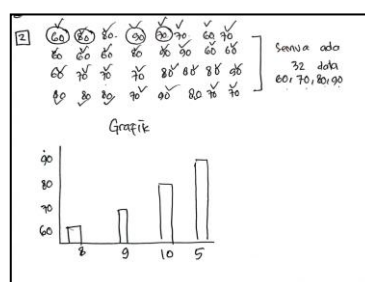 2 60 80 80. 90 90 70 60 70
80 60 60 80 90 90 60 60
60 70 70 70 80 80 80 90
80 80 80 70 90 80 70 70
Semua ada
32 data
60, 70, 80, 90
Grafik
90
80
70
60
8 9 10 5